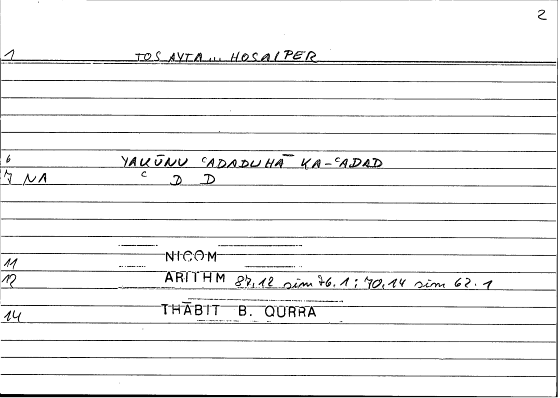 2
1 TOS AYTA... HOSAIPER
6 YAKŪNU ᶜADADUHĀ KA-ᶜADAD
7 NA ᶜ D D
11 NICOM
12 ARITHM 87,12 sim 76.1; 70,14 sim 62.1
14 THĀBIT B. QURRA